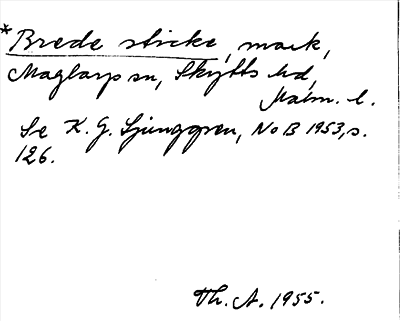 *Brede sticke, mark,
Maglarps sn, Skytts hd,
Malm. l.
Se K. G. Ljunggren, NoB 1953, s.
126.
Th. A. 1955.